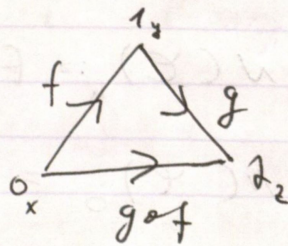 1 y
f g
0 x 2 z
g∘f